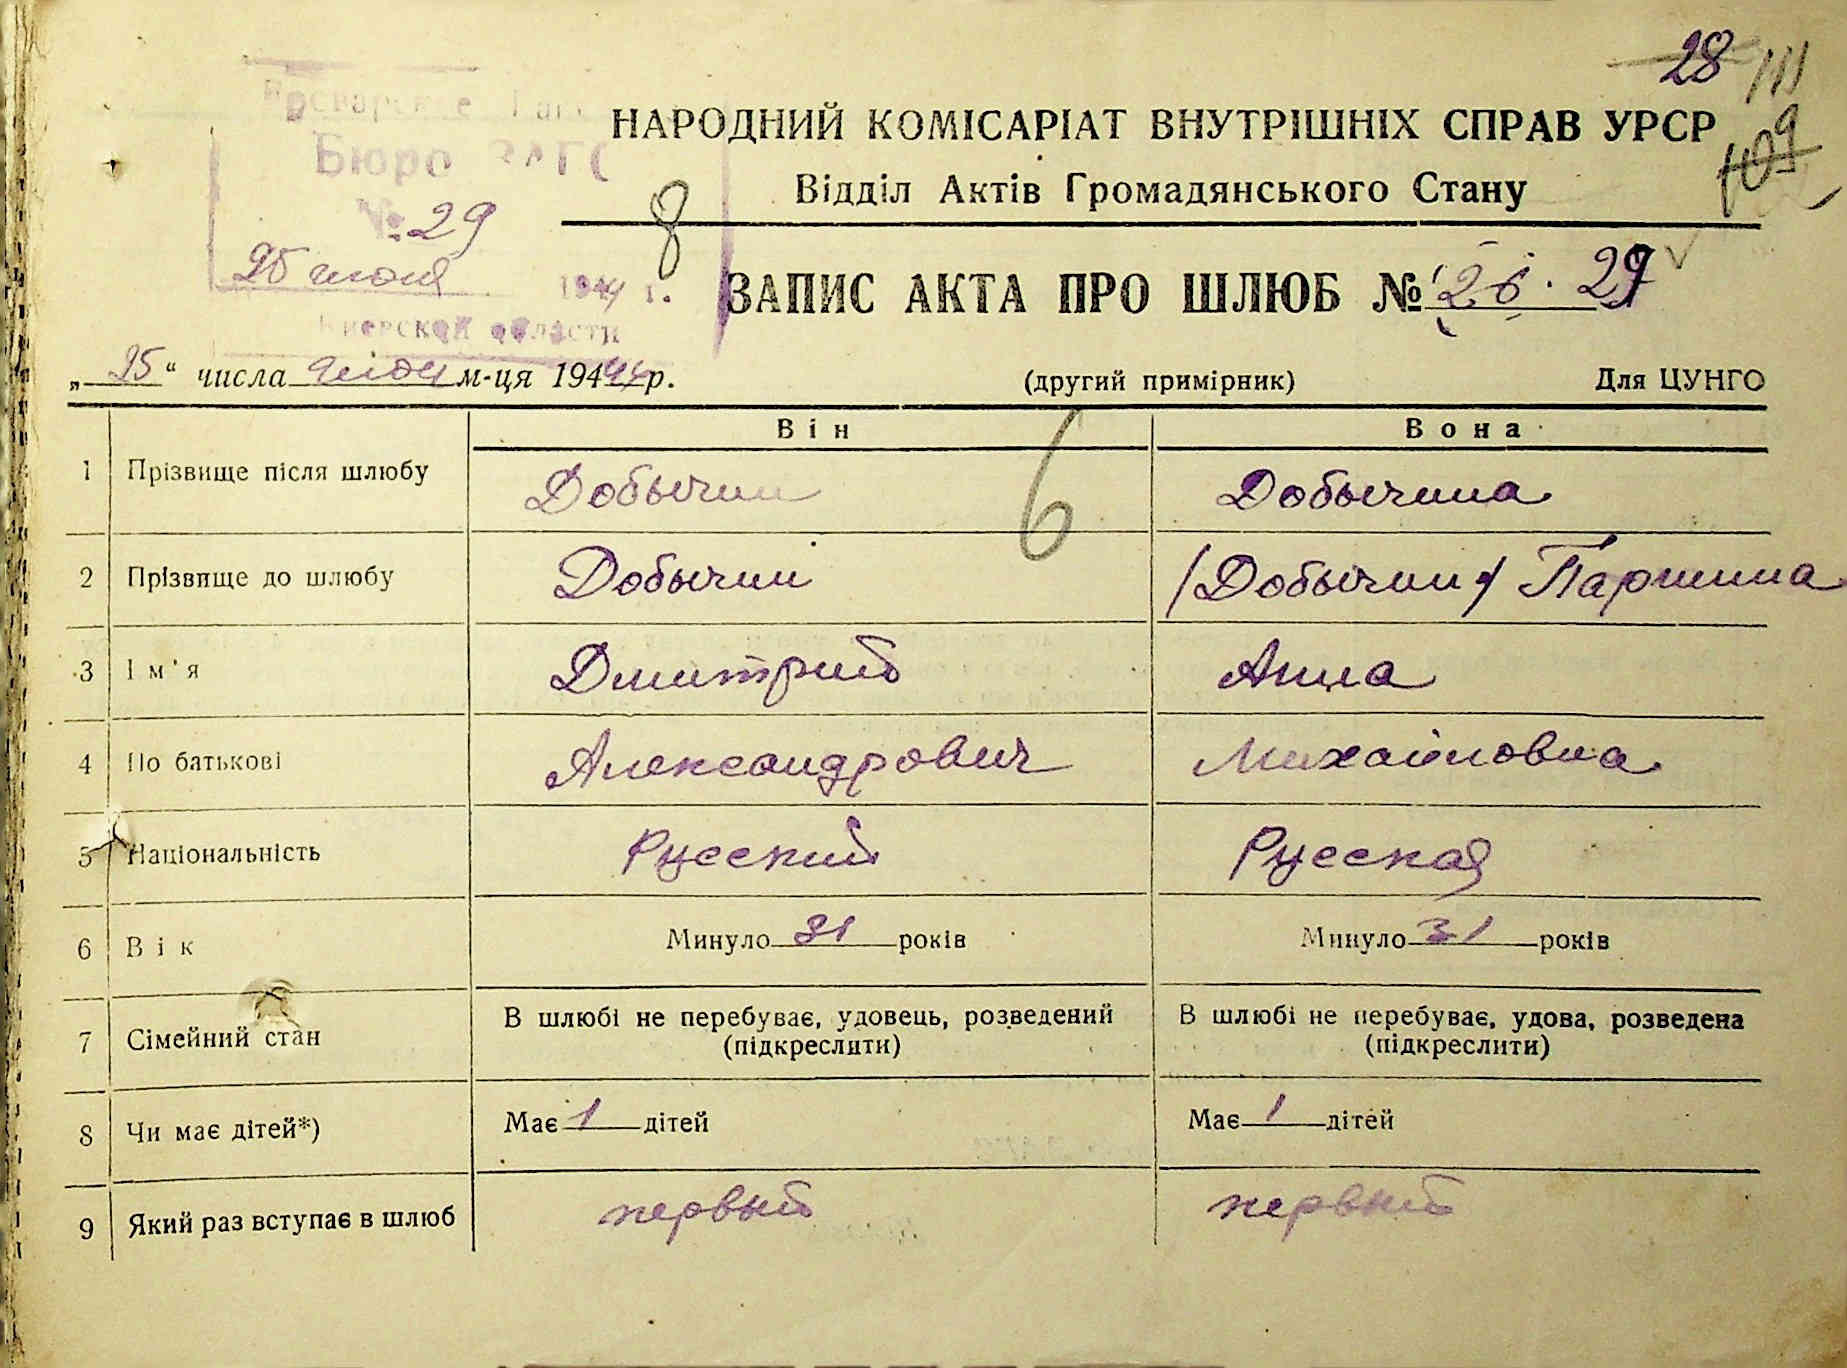 28 111
109
Бюро ЗАГС
№ 29
25 июня 1944 г.
Киевской области
8
НАРОДНИЙ КОМІСАРІАТ ВНУТРІШНІХ СПРАВ УРСР
Відділ Актів Громадянського Стану
ЗАПИС АКТА ПРО ШЛЮБ № 26. 29
„25“ числа м-ця 1944 р. (другий примірник) Для ЦУНГО
Він Вона
6
1 Прізвище після шлюбу Добычин Добычина
2 Прізвище до шлюбу Добычин (Добычин) Паршина
3 Ім'я Дмитрий Анна
4 По батькові Александрович Михайловна
5 Національність Русский Русская
6 Вік Минуло 31 років Минуло 31 років
7 Сімейний стан В шлюбі не перебуває, удовець, розведений В шлюбі не перебуває, удова, розведена
(підкреслити) (підкреслити)
8 Чи має дітей*) Має 1 дітей Має 1 дітей
9 Який раз вступає в шлюб первый первый